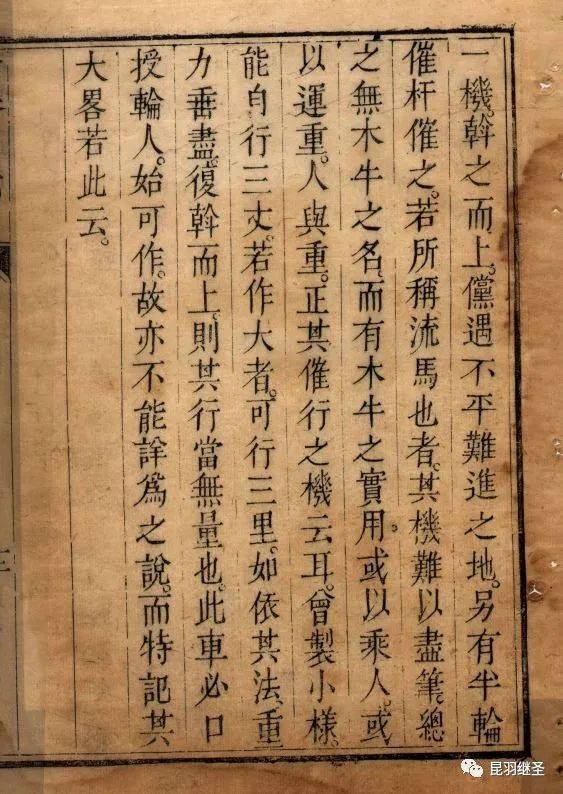 一機。斡之而上。儻遇不平難進之地。另有半輪
催杆催之。若所稱流馬也者。其機難以盡筆。總
之無木牛之名。而有木牛之實用。或以乘人。或
以運重。人與重。正其催行之機云耳。曾製小樣。
能自行三丈。若作大者。可行三里。如依其法。重
力垂盡。復斡而上。則其行當無量也。此車必口
授輪人。始可作。故亦不能詳爲之說。而特記其
大畧若此云。
昆羽继圣